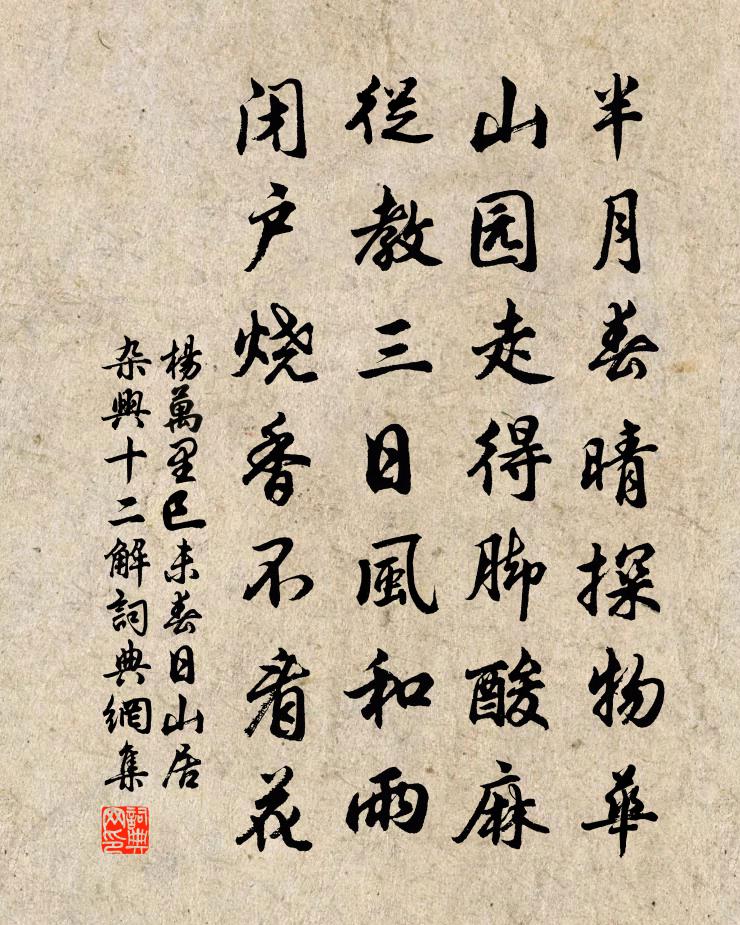 半月春晴探物華
山园走得脚酸麻
從教三日風和雨
闭户烧香不看花
楊萬里巳未春日山居
杂興十二解詞典網集
詞典
网印